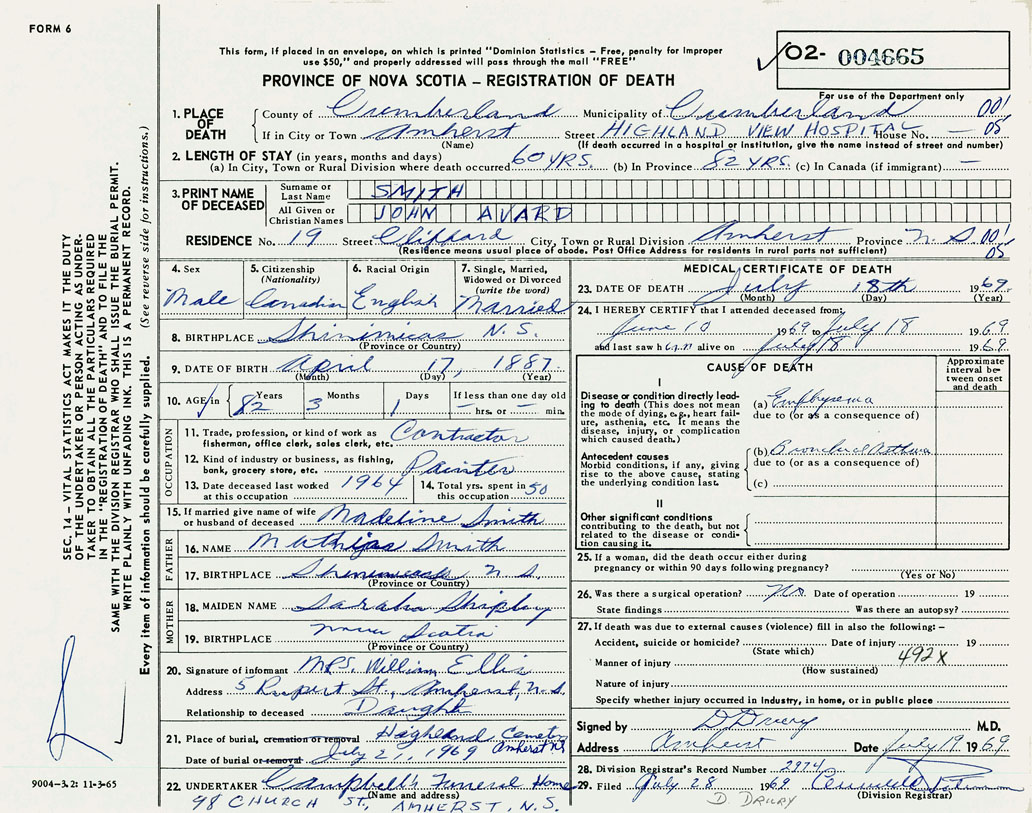 FORM 6
This form, if placed in an envelope, on which is printed "Dominion Statistics – Free, penalty for improper
use $50," and properly addressed will pass through the mail "FREE"
PROVINCE OF NOVA SCOTIA – REGISTRATION OF DEATH
O2- 004665
For use of the Department only
1. PLACE OF DEATH
County of Cumberland Municipality of Cumberland 001
If in City or Town Amherst Street HIGHLAND VIEW HOSPITAL House No. — 05
(Name) (If death occurred in a hospital or institution, give the name instead of street and number)
2. LENGTH OF STAY (in years, months and days)
(a) In City, Town or Rural Division where death occurred 60 YRS. (b) In Province 82 YRS. (c) In Canada (if immigrant) —
3. PRINT NAME OF DECEASED
Surname or Last Name SMITH
All Given or Christian Names JOHN AVARD
RESIDENCE No. 19 Street Clifford City, Town or Rural Division Amherst Province N. S. 001
(Residence means usual place of abode. Post Office Address for residents in rural parts not sufficient) 05
4. Sex
Male
5. Citizenship
(Nationality)
Canadian
6. Racial Origin
English
7. Single, Married,
Widowed or Divorced
(write the word)
Married
8. BIRTHPLACE Shinimicas N. S.
(Province or Country)
9. DATE OF BIRTH April 17, 1887
(Month) (Day) (Year)
10. AGE in 82 Years 3 Months 1 Days If less than one day old
— hrs. or — min.
OCCUPATION
11. Trade, profession, or kind of work as Contractor
fisherman, office clerk, sales clerk, etc.
12. Kind of industry or business, as fishing, Painter
bank, grocery store, etc.
13. Date deceased last worked 1964
at this occupation
14. Total yrs. spent in 50
this occupation
15. If married give name of wife Madeline Smith
or husband of deceased
FATHER
16. NAME Mathias Smith
17. BIRTHPLACE Shinimicas N. S.
(Province or Country)
MOTHER
18. MAIDEN NAME Sarah Shipley
19. BIRTHPLACE Nova Scotia
(Province or Country)
20. Signature of informant MRS. William Ellis
Address 5 Rupert St., Amherst, N. S.
Relationship to deceased Daught
21. Place of burial, cremation or removal Highland Cemetery
Amherst NS
Date of burial or removal July 21, 1969
22. UNDERTAKER Campbell's Funeral Home
(Name and address)
98 CHURCH ST, AMHERST, N.S.
MEDICAL CERTIFICATE OF DEATH
23. DATE OF DEATH July 18th 1969.
(Month) (Day) (Year)
24. I HEREBY CERTIFY that I attended deceased from:
June 10 1969 to July 18 1969
and last saw him alive on July 18 1969
CAUSE OF DEATH
Approximate
interval be-
tween onset
and death
I
Disease or condition directly lead-
ing to death (This does not mean
the mode of dying, e.g., heart fail-
ure, asthenia, etc. It means the
disease, injury, or complication
which caused death.)
(a) Emphysema
due to (or as a consequence of)
Antecedent causes
Morbid conditions, if any, giving
rise to the above cause, stating
the underlying condition last.
(b) Bronchial Asthma
due to (or as a consequence of)
(c)
II
Other significant conditions
contributing to the death, but not
related to the disease or condi-
tion causing it.
25. If a woman, did the death occur either during
pregnancy or within 90 days following pregnancy?
(Yes or No)
26. Was there a surgical operation? No Date of operation 19
State findings Was there an autopsy?
27. If death was due to external causes (violence) fill in also the following: –
Accident, suicide or homicide? Date of injury 19
(State which) 492X
Manner of injury
(How sustained)
Nature of injury
Specify whether injury occurred in industry, in home, or in public place
Signed by D Drury M.D.
Address Amherst Date July 19 1969.
28. Division Registrar's Record Number 2974
29. Filed July 28 1969
(Division Registrar)
D. DRURY
SEC. 14 – VITAL STATISTICS ACT MAKES IT THE DUTY
OF THE UNDERTAKER OR PERSON ACTING AS UNDER-
TAKER TO OBTAIN ALL THE PARTICULARS REQUIRED
IN THE "REGISTRATION OF DEATH" AND TO FILE THE
SAME WITH THE DIVISION REGISTRAR WHO SHALL ISSUE THE BURIAL PERMIT.
WRITE PLAINLY WITH UNFADING INK. THIS IS A PERMANENT RECORD.
Every item of information should be carefully supplied. (See reverse side for instructions.)
9004-3.2: 11-3-65